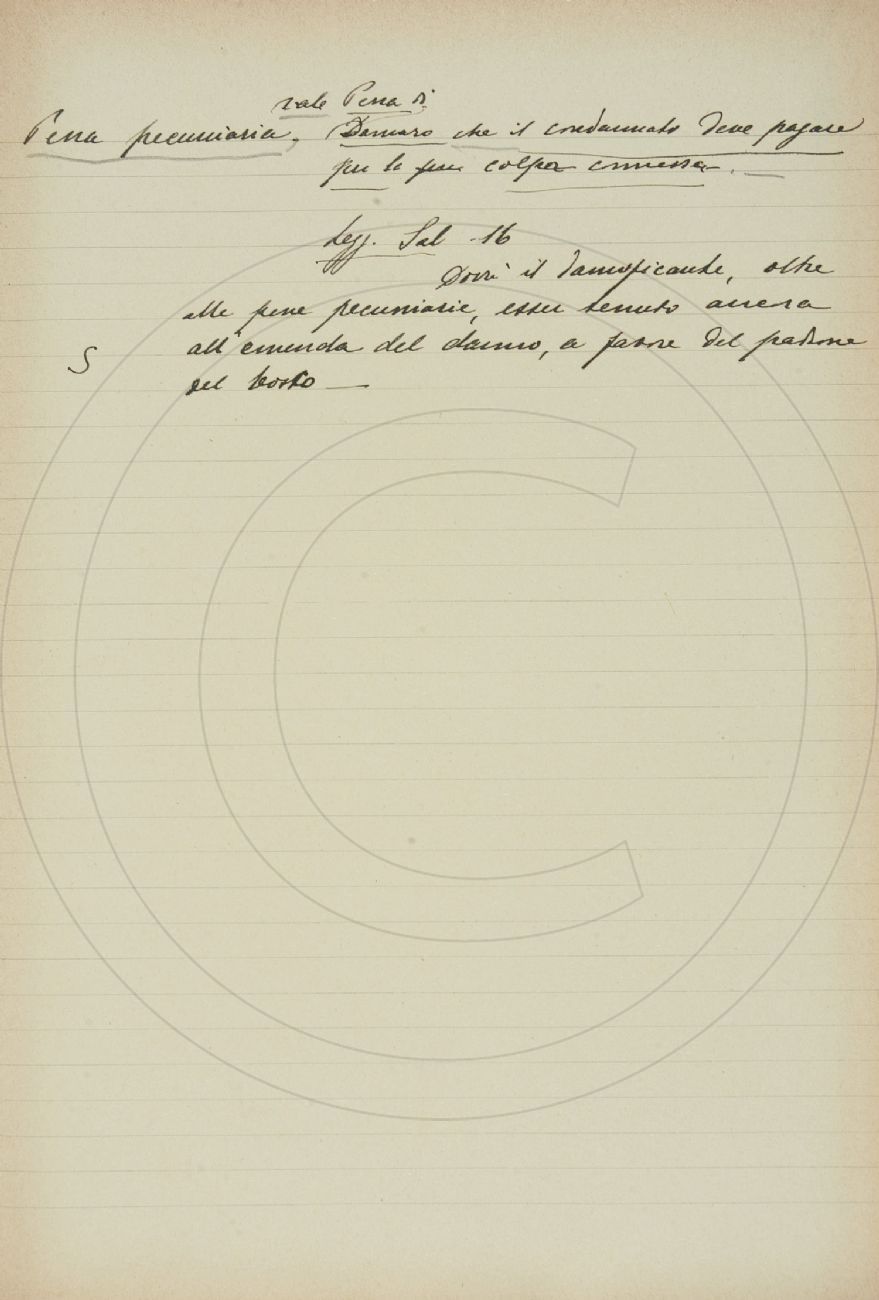 vale Pena di
Pena pecuniaria, Danaro che il condannato deve pagare
per la sua colpa commessa.
Legg. Sal 16
Dovrà il danneficante, oltre
alle pene pecuniarie, esser tenuto ancora
all'emenda del danno, a favore del padrone
S
del bosco —